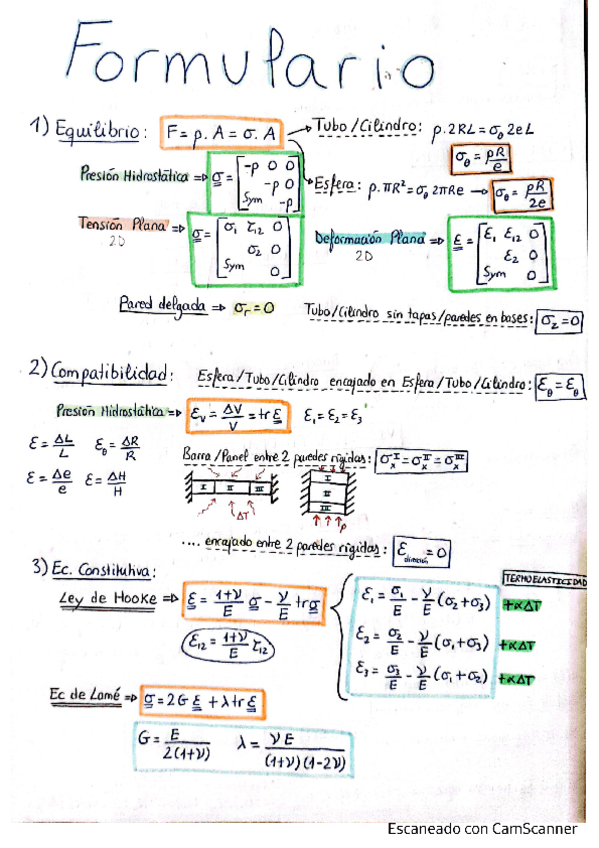 Formulario
1) Equilibrio: F = p. A = σ. A → Tubo/Cilindro: p.2RL = σ_θ 2eL
σ_θ = pR/e
Presión Hidrostática ⇒ σ = [-p 0 0; -p 0; Sym -p]
Esfera: p.πR² = σ_θ 2πRe → σ_θ = pR/2e
Tensión Plana ⇒ σ = [σ₁ τ₁₂ 0; σ₂ 0; Sym 0]
2D
Deformación Plana ⇒ ε = [ε₁ ε₁₂ 0; ε₂ 0; Sym 0]
2D
Pared delgada ⇒ σ_r = 0
Tubo/Cilindro sin tapas/paredes en bases: σ_z = 0
2) Compatibilidad: Esfera/Tubo/Cilindro encajado en Esfera/Tubo/Cilindro: ε_θ = ε_θ
Presión Hidrostática ⇒ ε_V = ΔV/V = tr ε ε₁ = ε₂ = ε₃
ε = ΔL/L ε_θ = ΔR/R
ε = Δe/e ε = ΔH/H
Barra/Panel entre 2 paredes rígidas: σ_x^I = σ_x^II = σ_x^III
I II III
ΔT
I
II
III
p
.... encajado entre 2 paredes rígidas: ε_dimensión = 0
3) Ec. Constitutiva:
TERMOELASTICIDAD
Ley de Hooke ⇒ ε = 1+ν/E σ - ν/E tr σ
ε₁₂ = 1+ν/E τ₁₂
ε₁ = σ₁/E - ν/E (σ₂+σ₃) +αΔT
ε₂ = σ₂/E - ν/E (σ₁+σ₃) +αΔT
ε₃ = σ₃/E - ν/E (σ₁+σ₂) +αΔT
Ec de Lamé ⇒ σ = 2G ε + λ tr ε
G = E/2(1+ν) λ = νE/(1+ν)(1-2ν)
Escaneado con CamScanner